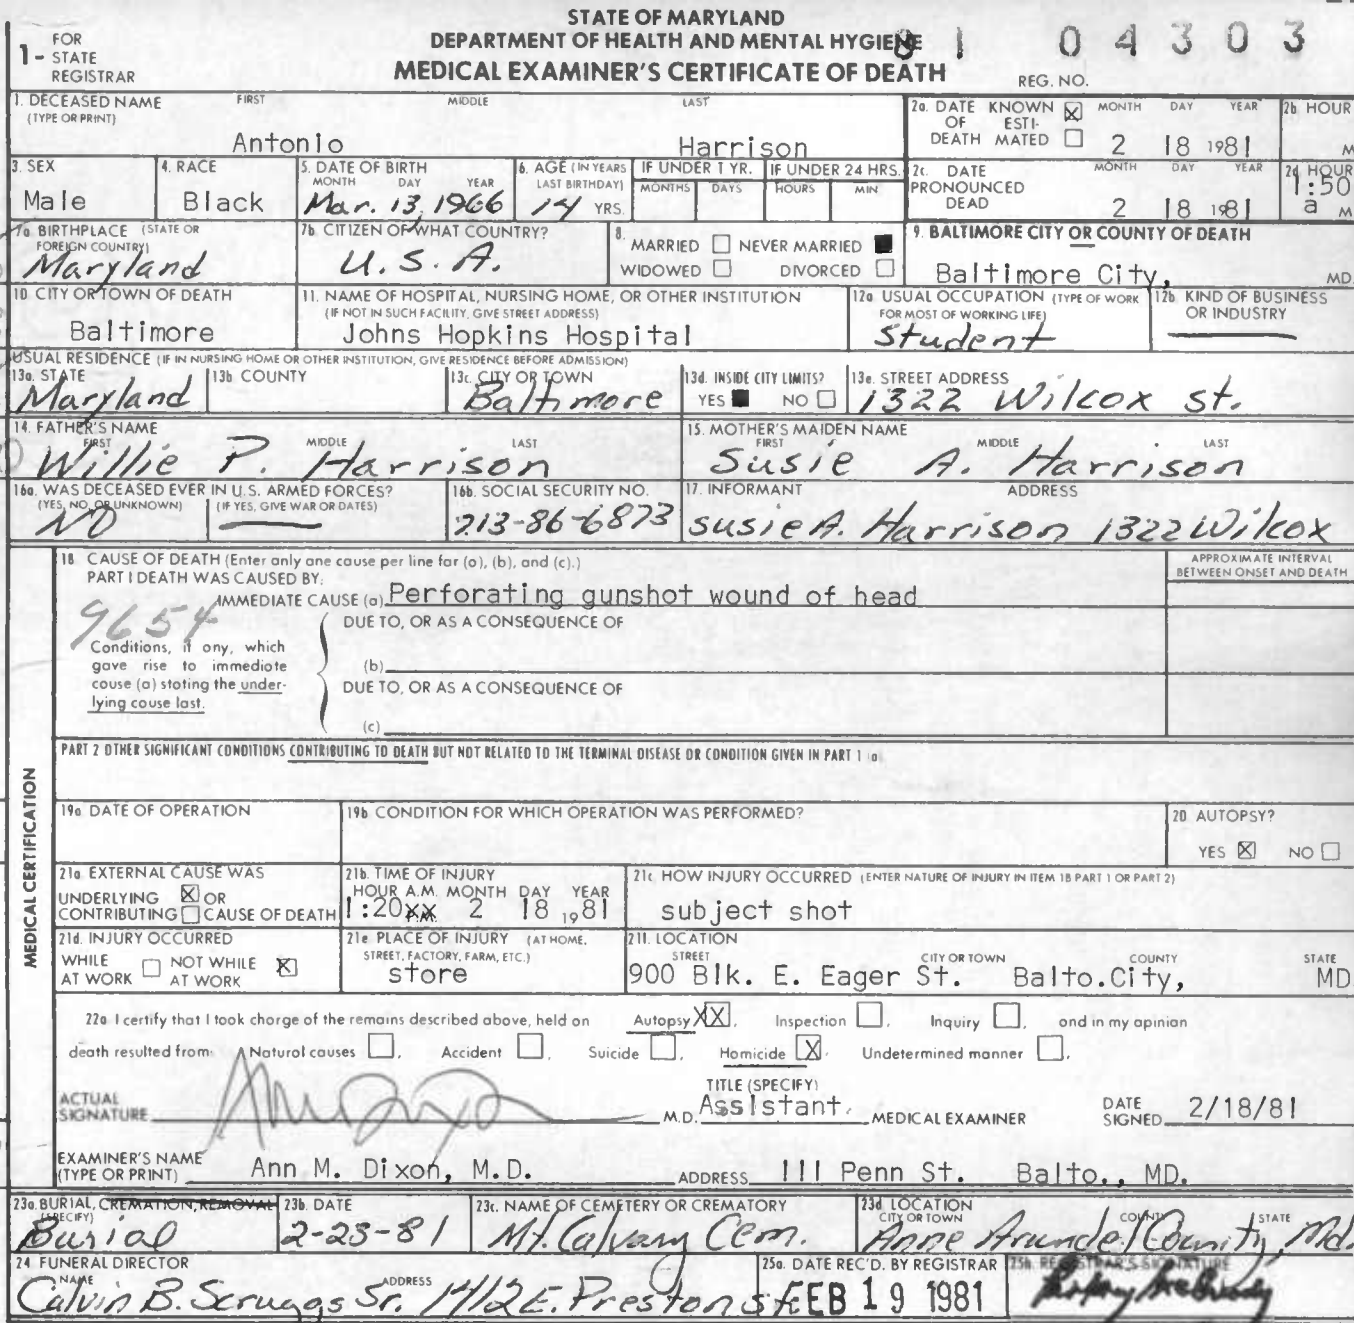 STATE OF MARYLAND
DEPARTMENT OF HEALTH AND MENTAL HYGIENE
MEDICAL EXAMINER'S CERTIFICATE OF DEATH
1 - FOR STATE REGISTRAR
81 04303
REG. NO.
1. DECEASED NAME (TYPE OR PRINT) FIRST MIDDLE LAST
Antonio Harrison
2a. DATE OF DEATH KNOWN ☒ ESTIMATED ☐ MONTH DAY YEAR 2b. HOUR
2 18 1981 M
3. SEX 4. RACE 5. DATE OF BIRTH MONTH DAY YEAR 6. AGE (IN YEARS LAST BIRTHDAY) IF UNDER 1 YR. MONTHS DAYS IF UNDER 24 HRS. HOURS MIN
Male Black Mar. 13, 1966 14 YRS.
2c. DATE PRONOUNCED DEAD MONTH DAY YEAR 2d HOUR
2 18 1981 1:50 a M
7a. BIRTHPLACE (STATE OR FOREIGN COUNTRY) 7b. CITIZEN OF WHAT COUNTRY?
Maryland U.S.A.
8. MARRIED ☐ NEVER MARRIED ■
WIDOWED ☐ DIVORCED ☐
9. BALTIMORE CITY OR COUNTY OF DEATH
Baltimore City, MD.
10 CITY OR TOWN OF DEATH 11. NAME OF HOSPITAL, NURSING HOME, OR OTHER INSTITUTION (IF NOT IN SUCH FACILITY, GIVE STREET ADDRESS) 12a USUAL OCCUPATION (TYPE OF WORK FOR MOST OF WORKING LIFE) 12b. KIND OF BUSINESS OR INDUSTRY
Baltimore Johns Hopkins Hospital Student
USUAL RESIDENCE (IF IN NURSING HOME OR OTHER INSTITUTION, GIVE RESIDENCE BEFORE ADMISSION)
13a. STATE 13b COUNTY 13c. CITY OR TOWN 13d. INSIDE CITY LIMITS? 13e. STREET ADDRESS
Maryland Baltimore YES ■ NO ☐ 1322 Wilcox St.
14. FATHER'S NAME FIRST MIDDLE LAST 15. MOTHER'S MAIDEN NAME FIRST MIDDLE LAST
Willie P. Harrison Susie A. Harrison
16a. WAS DECEASED EVER IN U.S. ARMED FORCES? (YES, NO, OR UNKNOWN) (IF YES, GIVE WAR OR DATES) 16b. SOCIAL SECURITY NO. 17. INFORMANT ADDRESS
NO 213-86-6873 Susie A. Harrison 1322 Wilcox
MEDICAL CERTIFICATION
18 CAUSE OF DEATH (Enter only one cause per line for (a), (b), and (c).)
APPROXIMATE INTERVAL BETWEEN ONSET AND DEATH
PART I DEATH WAS CAUSED BY:
IMMEDIATE CAUSE (a) Perforating gunshot wound of head
9654
DUE TO, OR AS A CONSEQUENCE OF
Conditions, if any, which gave rise to immediate cause (a) stating the underlying cause last.
(b)
DUE TO, OR AS A CONSEQUENCE OF
(c)
PART 2 OTHER SIGNIFICANT CONDITIONS CONTRIBUTING TO DEATH BUT NOT RELATED TO THE TERMINAL DISEASE OR CONDITION GIVEN IN PART 1 (a)
19a DATE OF OPERATION 19b CONDITION FOR WHICH OPERATION WAS PERFORMED? 20. AUTOPSY?
YES ☒ NO ☐
21a. EXTERNAL CAUSE WAS
UNDERLYING ☒ OR
CONTRIBUTING ☐ CAUSE OF DEATH
21b. TIME OF INJURY
HOUR A.M. MONTH DAY YEAR
1:20 XX P.M. 2 18 1981
21c HOW INJURY OCCURRED (ENTER NATURE OF INJURY IN ITEM 18 PART 1 OR PART 2)
subject shot
21d. INJURY OCCURRED
WHILE AT WORK ☐ NOT WHILE AT WORK ☒
21e PLACE OF INJURY (AT HOME, STREET, FACTORY, FARM, ETC.)
store
21f. LOCATION STREET CITY OR TOWN COUNTY STATE
900 Blk. E. Eager St. Balto.City, MD
22a I certify that I took charge of the remains described above, held on Autopsy XX, Inspection ☐, Inquiry ☐, and in my opinion
death resulted from: Natural causes ☐, Accident ☐, Suicide ☐, Homicide ☒, Undetermined manner ☐.
ACTUAL SIGNATURE M.D. TITLE (SPECIFY) Assistant. MEDICAL EXAMINER DATE SIGNED 2/18/81
EXAMINER'S NAME (TYPE OR PRINT) Ann M. Dixon, M.D. ADDRESS 111 Penn St. Balto., MD.
23a. BURIAL, CREMATION, REMOVAL (SPECIFY) 23b. DATE 23c. NAME OF CEMETERY OR CREMATORY 23d LOCATION CITY OR TOWN COUNTY STATE
Burial 2-23-81 Mt. Calvary Cem. Anne Arundel County, Md.
24 FUNERAL DIRECTOR NAME ADDRESS 25a. DATE REC'D. BY REGISTRAR 25b. REGISTRAR'S SIGNATURE
Calvin B. Scruggs Sr. 1412 E. Preston St. FEB 19 1981